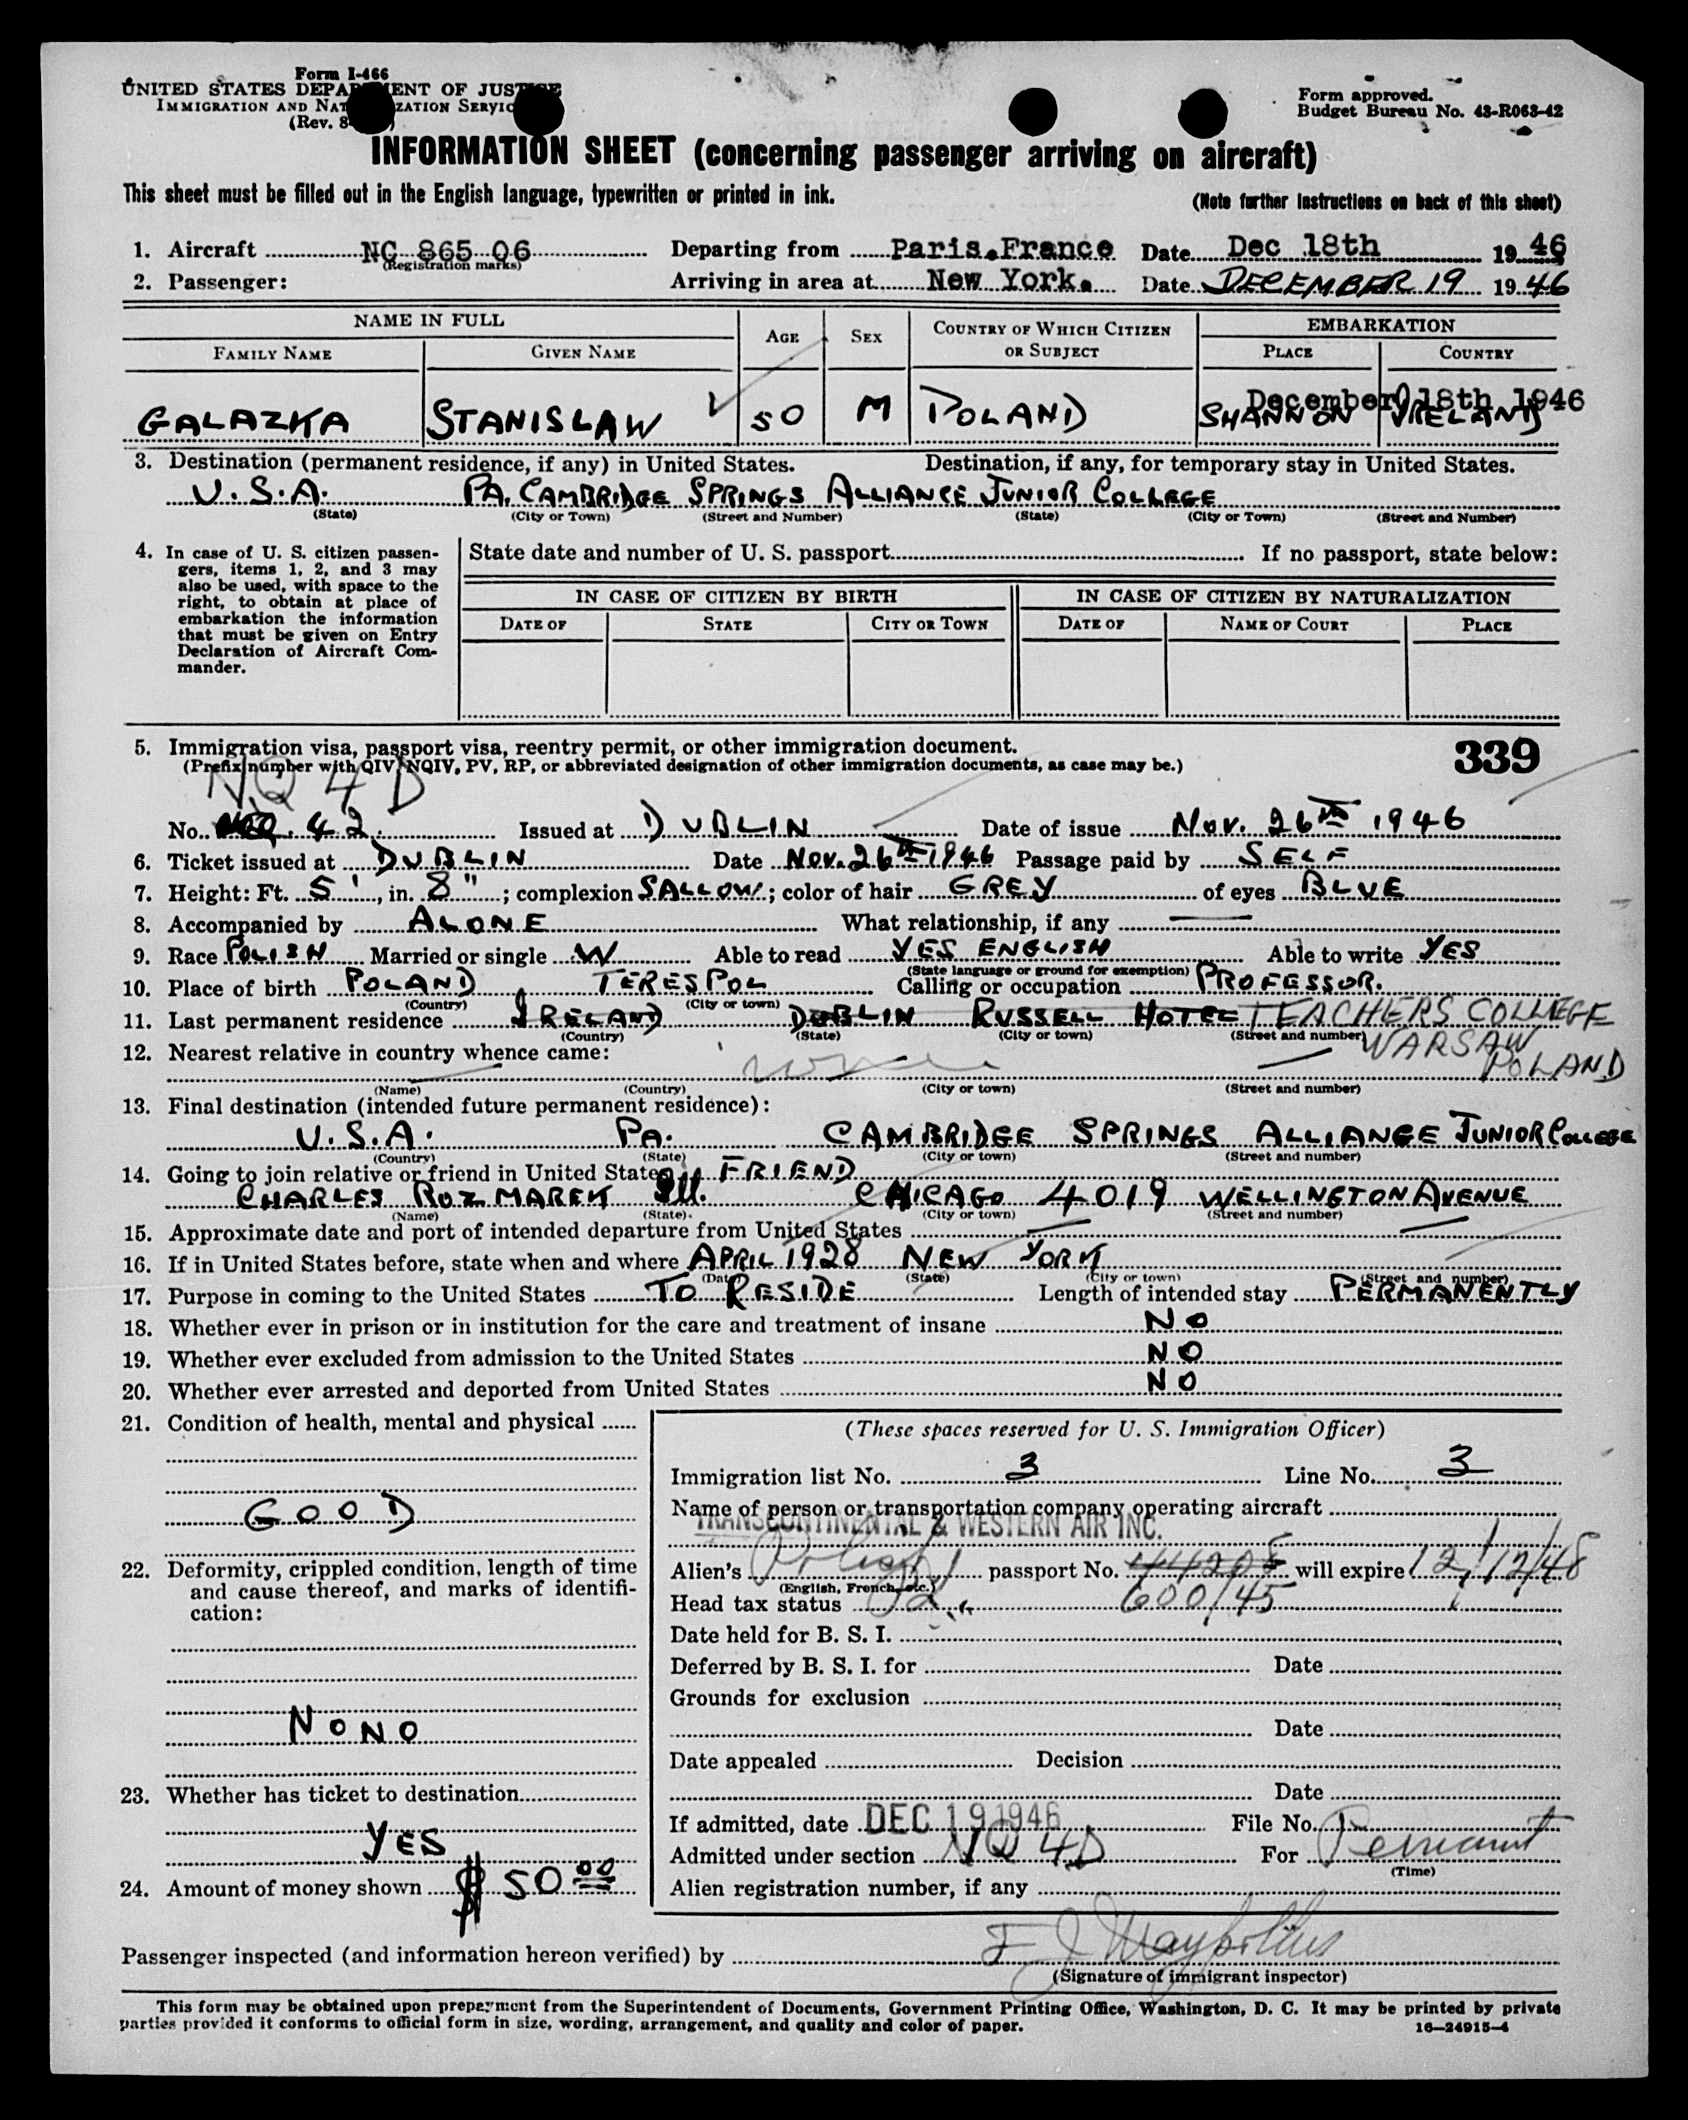 Form I-466
UNITED STATES DEPARTMENT OF JUSTICE
IMMIGRATION AND NATURALIZATION SERVICE
(Rev. 8
Form approved.
Budget Bureau No. 43-R063-42
INFORMATION SHEET (concerning passenger arriving on aircraft)
This sheet must be filled out in the English language, typewritten or printed in ink.
(Note further instructions on back of this sheet)
1. Aircraft NC 865 06 Departing from Paris.France Date Dec 18th 19 46
(Registration marks)
2. Passenger: Arriving in area at New York. Date DECEMBER 19 19 46
NAME IN FULL AGE SEX COUNTRY OF WHICH CITIZEN OR SUBJECT EMBARKATION
FAMILY NAME GIVEN NAME PLACE COUNTRY
December 18th 1946
GALAZKA STANISLAW 50 M POLAND SHANNON IRELAND
3. Destination (permanent residence, if any) in United States. Destination, if any, for temporary stay in United States.
U.S.A. PA. CAMBRIDGE SPRINGS ALLIANCE JUNIOR COLLEGE
(State) (City or Town) (Street and Number) (State) (City or Town) (Street and Number)
4. In case of U. S. citizen passen-
gers, items 1, 2, and 3 may
also be used, with space to the
right, to obtain at place of
embarkation the information
that must be given on Entry
Declaration of Aircraft Com-
mander.
State date and number of U. S. passport If no passport, state below:
IN CASE OF CITIZEN BY BIRTH IN CASE OF CITIZEN BY NATURALIZATION
DATE OF STATE CITY OR TOWN DATE OF NAME OF COURT PLACE
5. Immigration visa, passport visa, reentry permit, or other immigration document.
339
(Prefix number with QIV, NQIV, PV, RP, or abbreviated designation of other immigration documents, as case may be.)
NQ 4 D
No. 42. Issued at DUBLIN Date of issue Nov. 26th 1946
6. Ticket issued at DUBLIN Date Nov. 26th 1946 Passage paid by SELF
7. Height: Ft. 5', in. 8"; complexion SALLOW; color of hair GREY of eyes BLUE
8. Accompanied by ALONE What relationship, if any —
9. Race POLISH Married or single W Able to read YES ENGLISH Able to write YES
(State language or ground for exemption)
10. Place of birth POLAND TERESPOL Calling or occupation PROFESSOR.
(Country) (City or town)
11. Last permanent residence IRELAND DUBLIN RUSSELL HOTEL TEACHERS COLLEGE
(Country) (State) (City or town) (Street and number) WARSAW
POLAND
12. Nearest relative in country whence came:
none
(Name) (Country) (City or town) (Street and number)
13. Final destination (intended future permanent residence):
U.S.A. PA. CAMBRIDGE SPRINGS ALLIANCE JUNIOR COLLEGE
(Country) (State) (City or town) (Street and number)
14. Going to join relative or friend in United States FRIEND
CHARLES ROZMAREK Ill. CHICAGO 4019 WELLINGTON AVENUE
(Name) (State) (City or town) (Street and number)
15. Approximate date and port of intended departure from United States — —
16. If in United States before, state when and where APRIL 1928 NEW YORK
(Date) (State) (City or town) (Street and number)
17. Purpose in coming to the United States TO RESIDE Length of intended stay PERMANENTLY
18. Whether ever in prison or in institution for the care and treatment of insane NO
19. Whether ever excluded from admission to the United States NO
20. Whether ever arrested and deported from United States NO
21. Condition of health, mental and physical
GOOD
22. Deformity, crippled condition, length of time
and cause thereof, and marks of identifi-
cation:
NONO
23. Whether has ticket to destination
YES
24. Amount of money shown $ 50 00
(These spaces reserved for U. S. Immigration Officer)
Immigration list No. 3 Line No. 3
Name of person or transportation company operating aircraft
TRANSCONTINENTAL & WESTERN AIR INC.
Alien's Polish passport No. 44208 will expire 12/12/48
(English, French, etc.)
Head tax status 600/45
Date held for B. S. I.
Deferred by B. S. I. for Date
Grounds for exclusion
Date
Date appealed Decision
Date
If admitted, date DEC 19 1946 File No.
Admitted under section NQ 4D For Permanent
(Time)
Alien registration number, if any
Passenger inspected (and information hereon verified) by
(Signature of immigrant inspector)
This form may be obtained upon prepayment from the Superintendent of Documents, Government Printing Office, Washington, D. C. It may be printed by private
parties provided it conforms to official form in size, wording, arrangement, and quality and color of paper.
16—24915-4